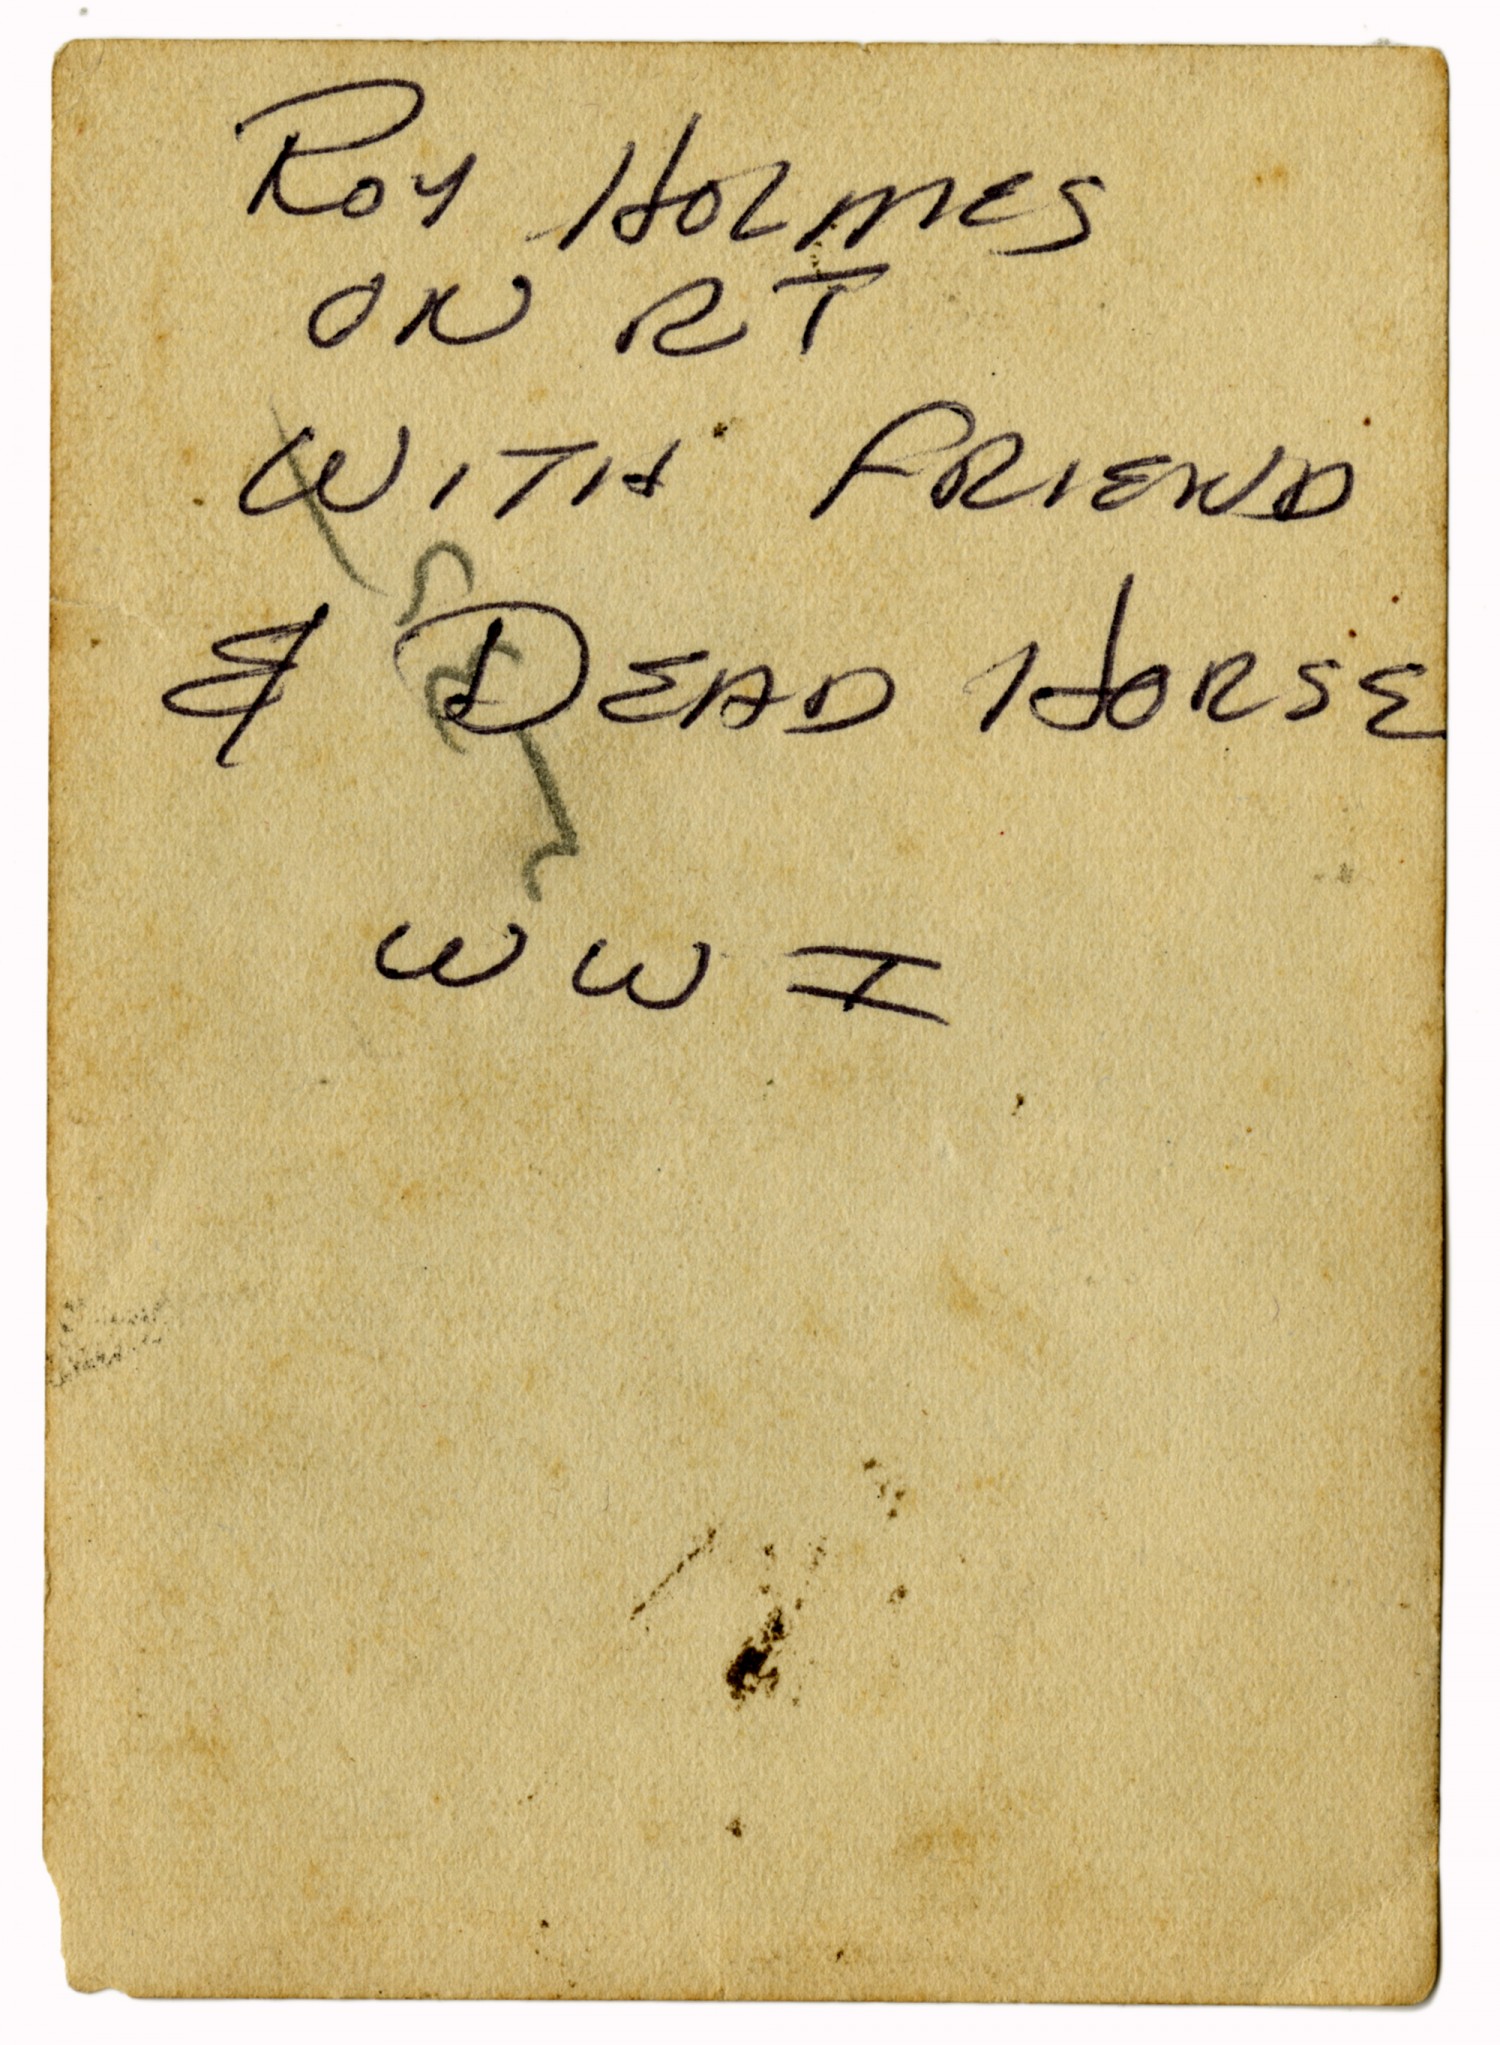 Roy HOLMES
ON RT
WITH FRIEND
& DEAD HORSE
WW I